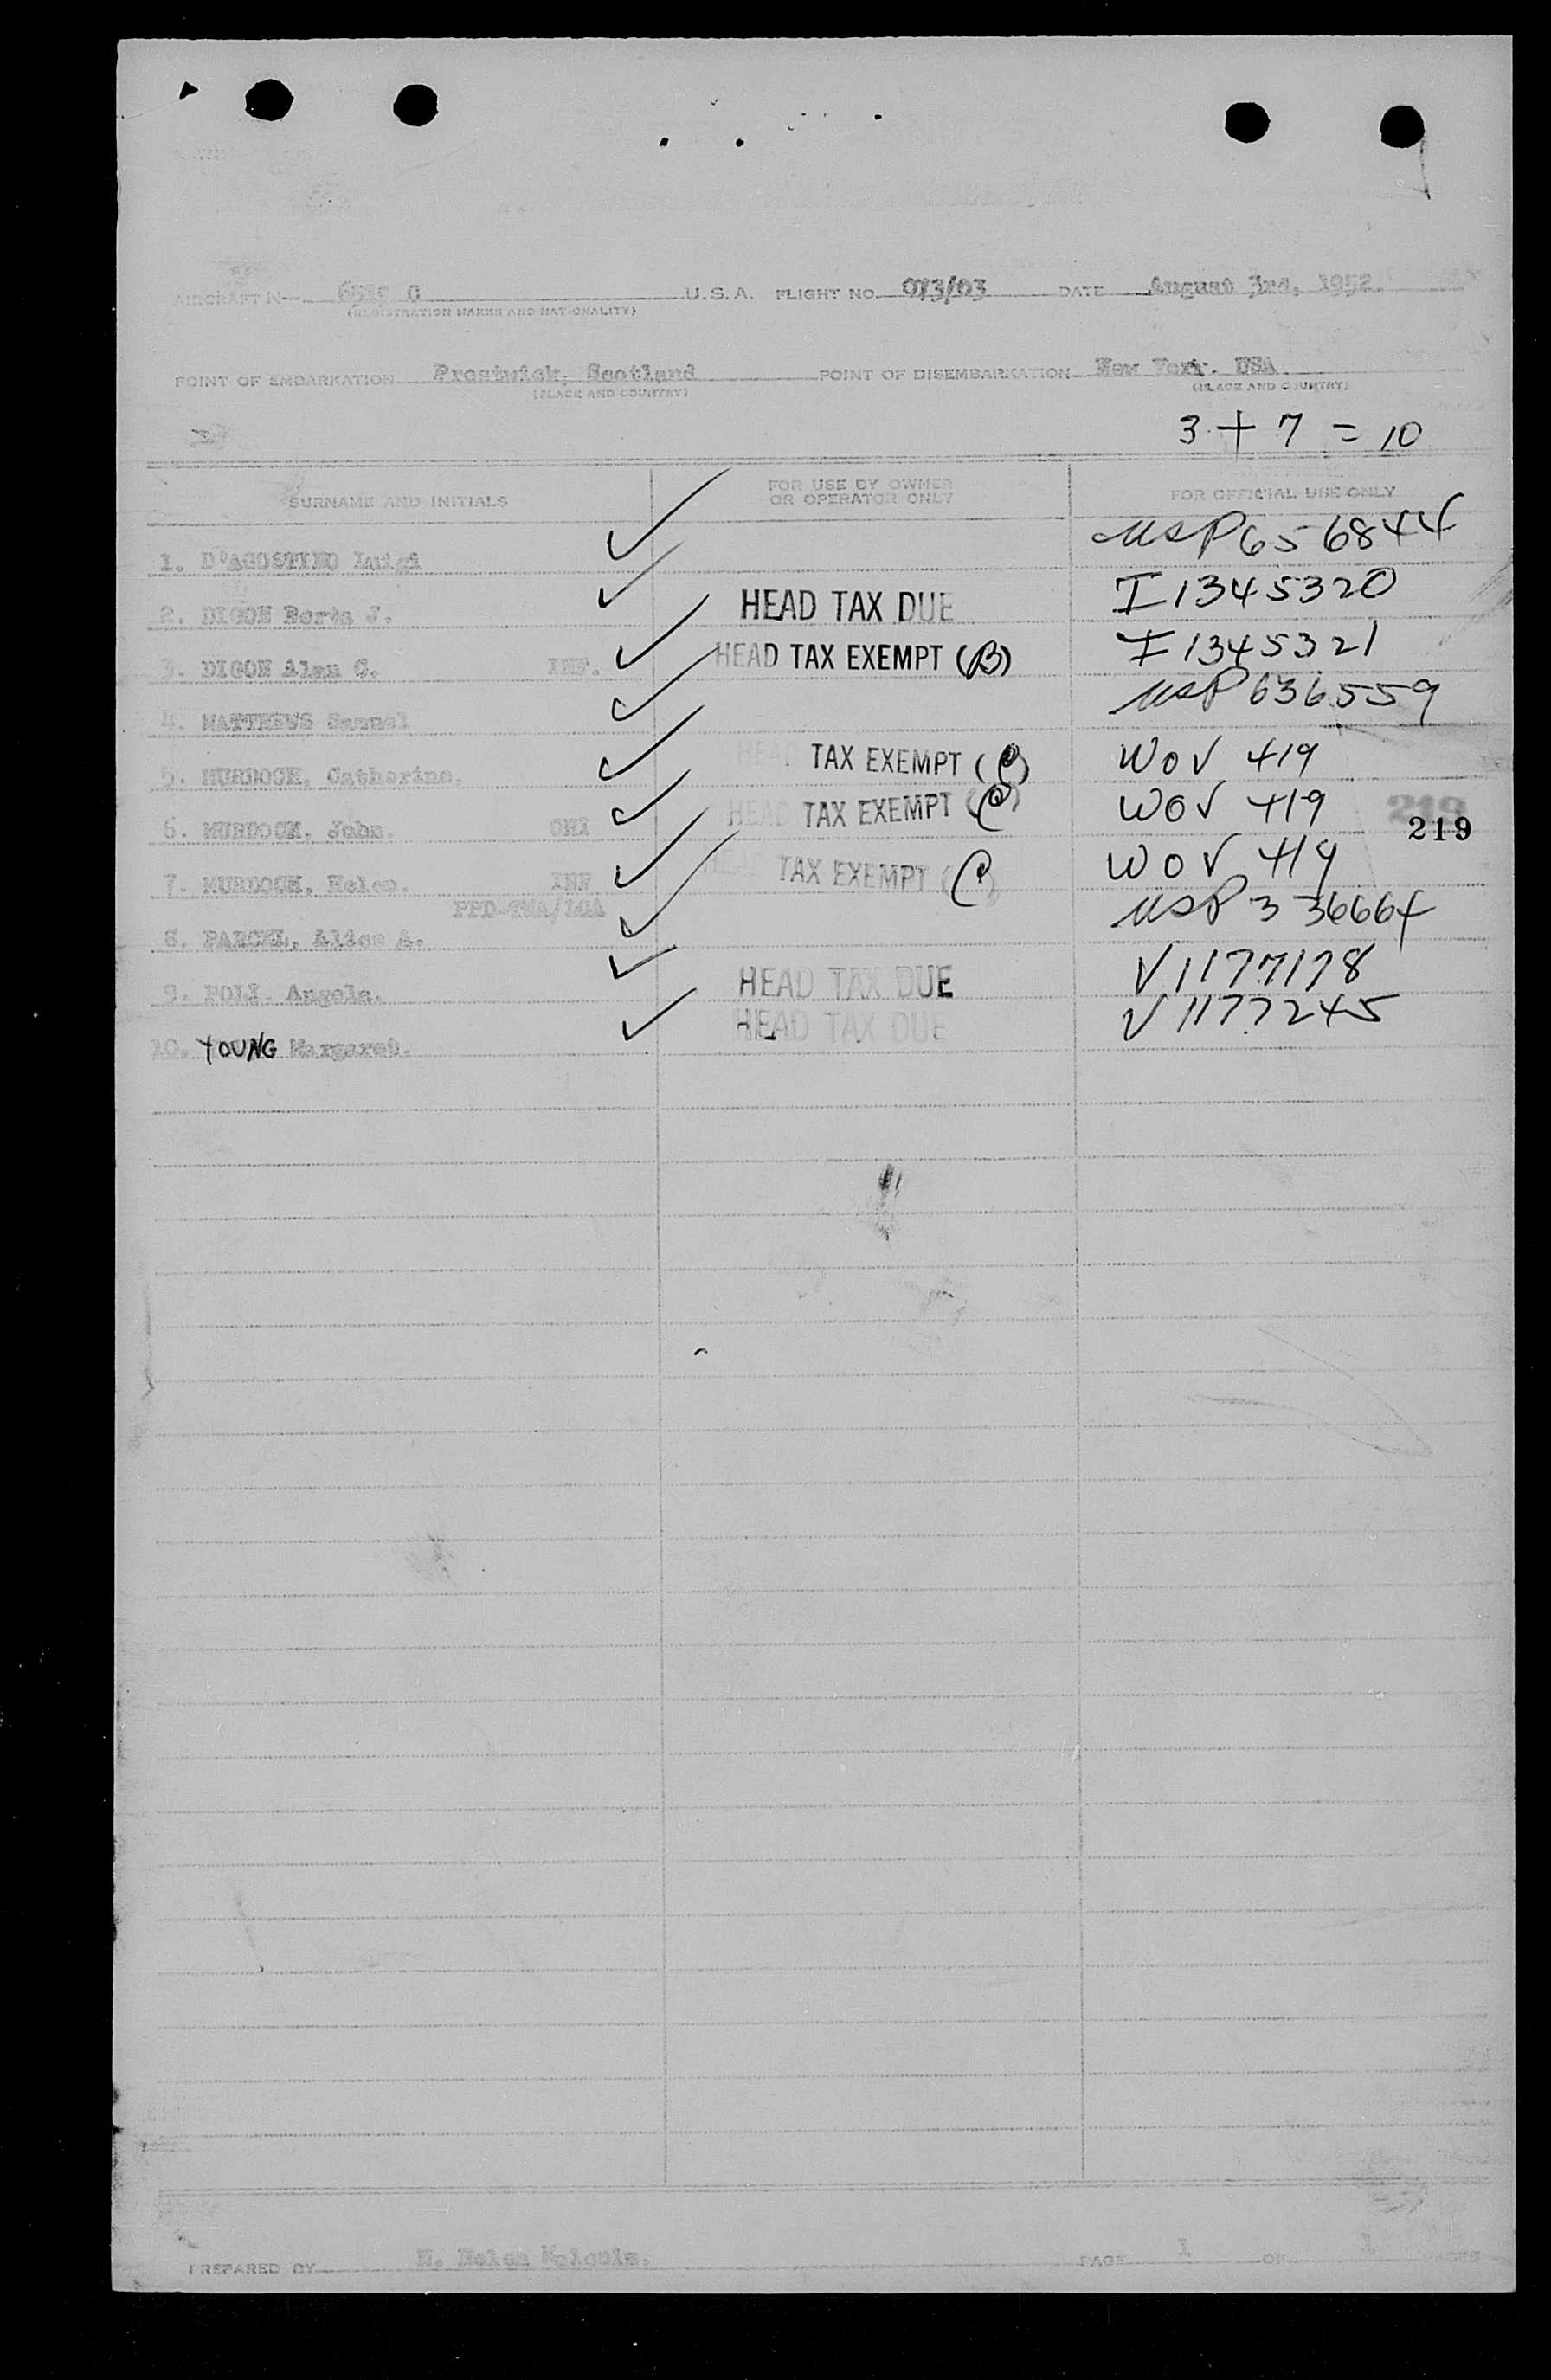 AIRCRAFT N 6515 C U.S.A. FLIGHT NO. 073/03 DATE August 3rd, 1952
(REGISTRATION MARKS AND NATIONALITY)
POINT OF EMBARKATION Prestwick, Scotland POINT OF DISEMBARKATION New York. USA.
(PLACE AND COUNTRY) (PLACE AND COUNTRY)
3 + 7 = 10
SURNAME AND INITIALS FOR USE BY OWNER OR OPERATOR ONLY FOR OFFICIAL USE ONLY
1. D'AGOSTINO Luigi USP 656844
2. DIGON Berta J. HEAD TAX DUE I 1345320
3. DIGON Alan C. INF. HEAD TAX EXEMPT (B) I 1345321
4. MATTHEWS Samuel USP 636559
5. MURDOCH, Catherine. HEAD TAX EXEMPT WOV 419
6. MURDOCH, John. CHI HEAD TAX EXEMPT WOV 419
219
7. MURDOCH, Helen. INF HEAD TAX EXEMPT WOV 419
PPD-TWA/LGA
8. PARCEL, Alice A. USP 336664
9. POLI. Angela. HEAD TAX DUE V 1177178
10. YOUNG Margaret. HEAD TAX DUE V 1177245
PREPARED BY Helen PAGE 1 OF 1 PAGES